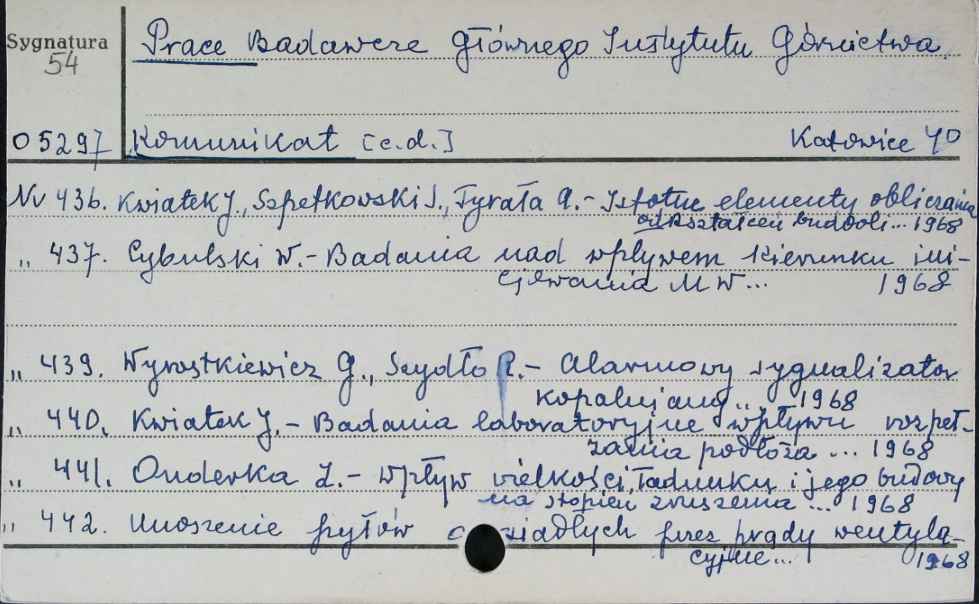 Sygnatura
54
Prace Badawcze Głównego Instytutu Górnictwa.
05297 Komunikat [c.d.] Katowice 40
Nr 436. Kwiatek J., Szpetkowski S., Tyrała A.- Istotne elementy obliczania
odkształceń budowli... 1968
„ 437. Cybulski W.- Badania nad wpływem kierunku ini-
cjowania MW... 1968
„ 439. Wyrostkiewicz G., Szydło R.- Alarmowy sygnalizator
kopalniany... 1968
„ 440. Kwiatek J.- Badania laboratoryjne wpływu rozpeł-
zania podłoża ... 1968
„ 441. Onderka Z.- Wpływ wielkości ładunku i jego budowy
na stopień zruszenia ... 1968
„ 442. Unoszenie pyłów osiadłych przez prądy wentyla-
cyjne... 1968